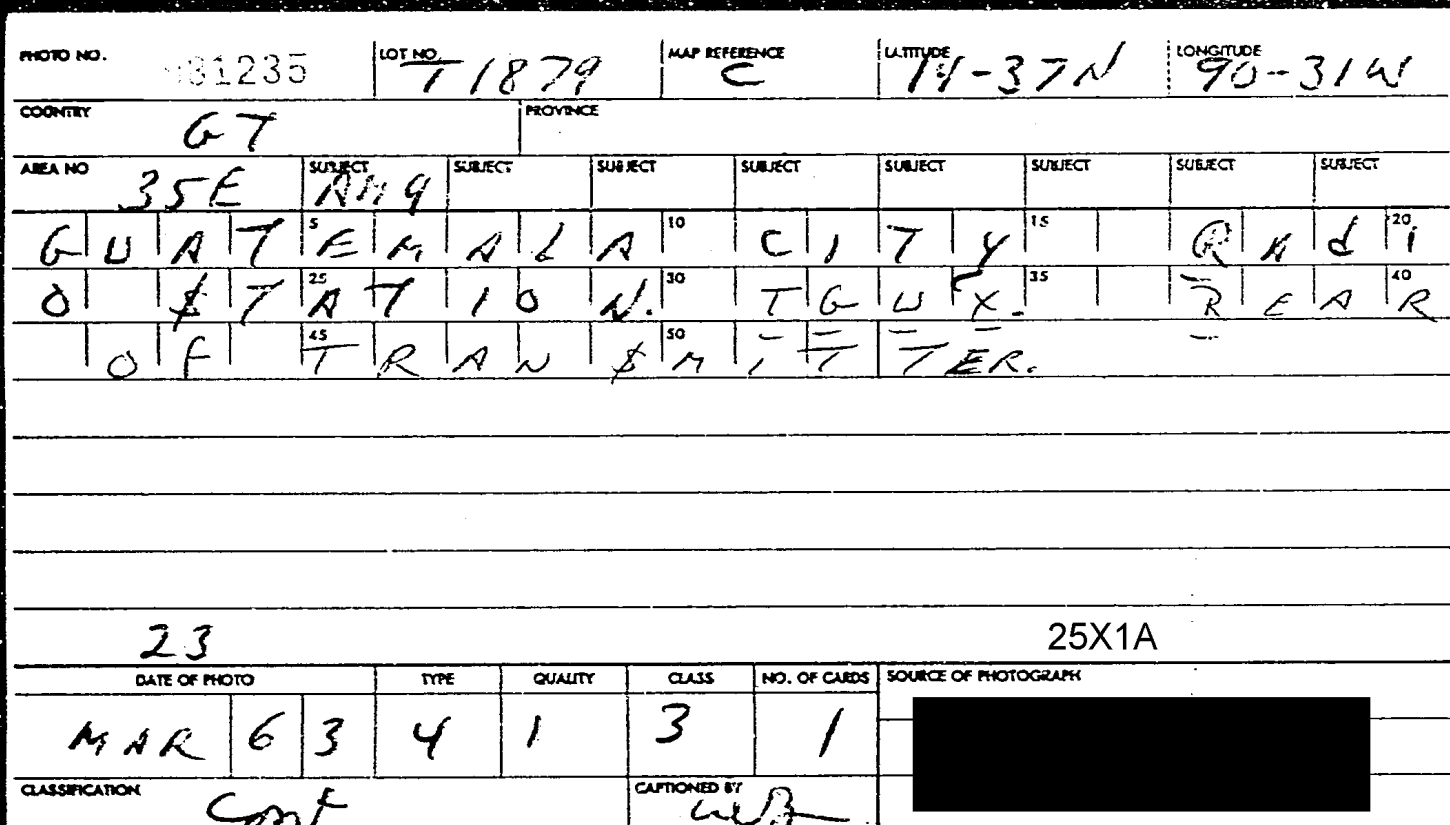 PHOTO NO. 031235 LOT NO. T1879 MAP REFERENCE C LATITUDE 14-37N LONGITUDE 90-31W
COUNTRY GT PROVINCE
AREA NO 35E SUBJECT AM9 SUBJECT SUBJECT SUBJECT SUBJECT SUBJECT SUBJECT SUBJECT
GUAT 5 EMALA 10 CITY 15 RAd 20 i
O $T 25 ATION. 30 TGUX. 35 REA 40 R
OF 45 TRAN$M 50 ITTER.
23 25X1A
DATE OF PHOTO TYPE QUALITY CLASS NO. OF CARDS SOURCE OF PHOTOGRAPH
MAR 63 4 1 3 1
CLASSIFICATION Conf CAPTIONED BY